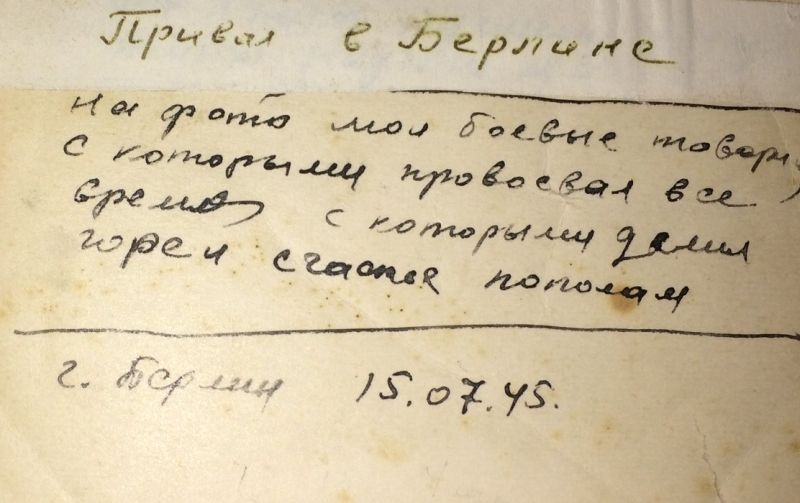 Привал в Берлине
на фото мои боевые товари
с которыми провоевал все
время с которыми делил
горе и счастье пополам
г. Берлин 15.07.45.